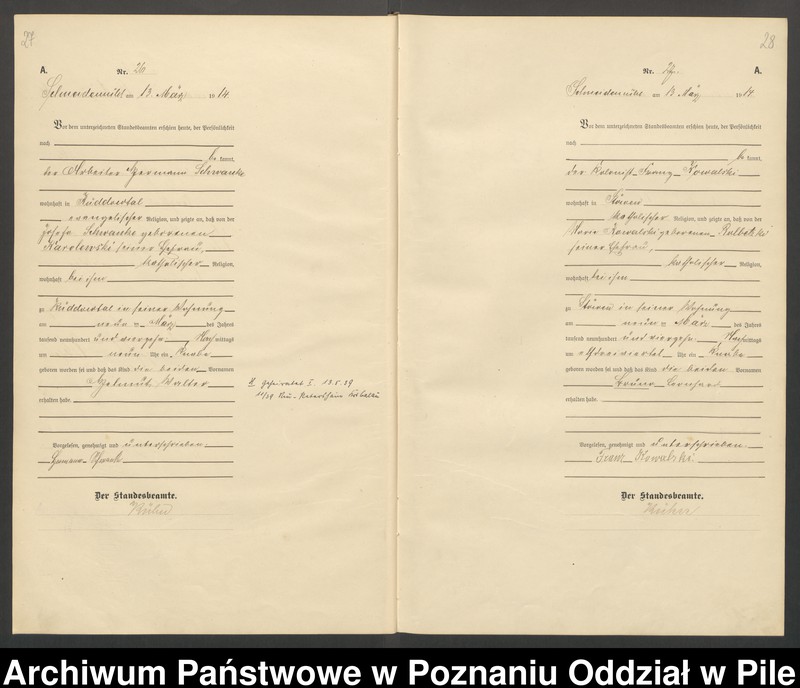 27
A.
Nr. 26
Schneidemühl am 13. März 1914.
Vor dem unterzeichneten Standesbeamten erschien heute, der Persönlichkeit
nach
be kannt,
der Arbeiter Hermann Schwanke
wohnhaft in Küddowtal
evangelischer Religion, und zeigte an, daß von der
Schwanke geborenen
seiner Ehefrau,
katholischer Religion,
wohnhaft bei ihm
zu Küddowtal in seiner Wohnung
am neun März des Jahres
tausend neunhundert und vierzehn, Nachmittags
um neun Uhr ein Knabe
geboren worden sei und daß das Kind die beiden Vornamen
Helmut Walter
erhalten habe.
Vorgelesen, genehmigt und unterschrieben
Der Standesbeamte.
geheiratet I 13.5.39
28
Nr. 27.
A.
Schneidemühl am 13. März 1914
Vor dem unterzeichneten Standesbeamten erschien heute, der Persönlichkeit
nach
be kannt,
der Kolonist Franz Kowalski
wohnhaft in Stöwen
katholischer Religion, und zeigte an, daß von der
Kowalski geborenen
seiner Ehefrau,
katholischer Religion,
wohnhaft bei ihm
zu Stöwen in seiner Wohnung
am neun März des Jahres
tausend neunhundert und vierzehn, Nachmittags
um Uhr ein Knabe
geboren worden sei und daß das Kind die beiden Vornamen
Bruno
erhalten habe.
Vorgelesen, genehmigt und unterschrieben
Franz Kowalski
Der Standesbeamte.
Archiwum Państwowe w Poznaniu Oddział w Pile